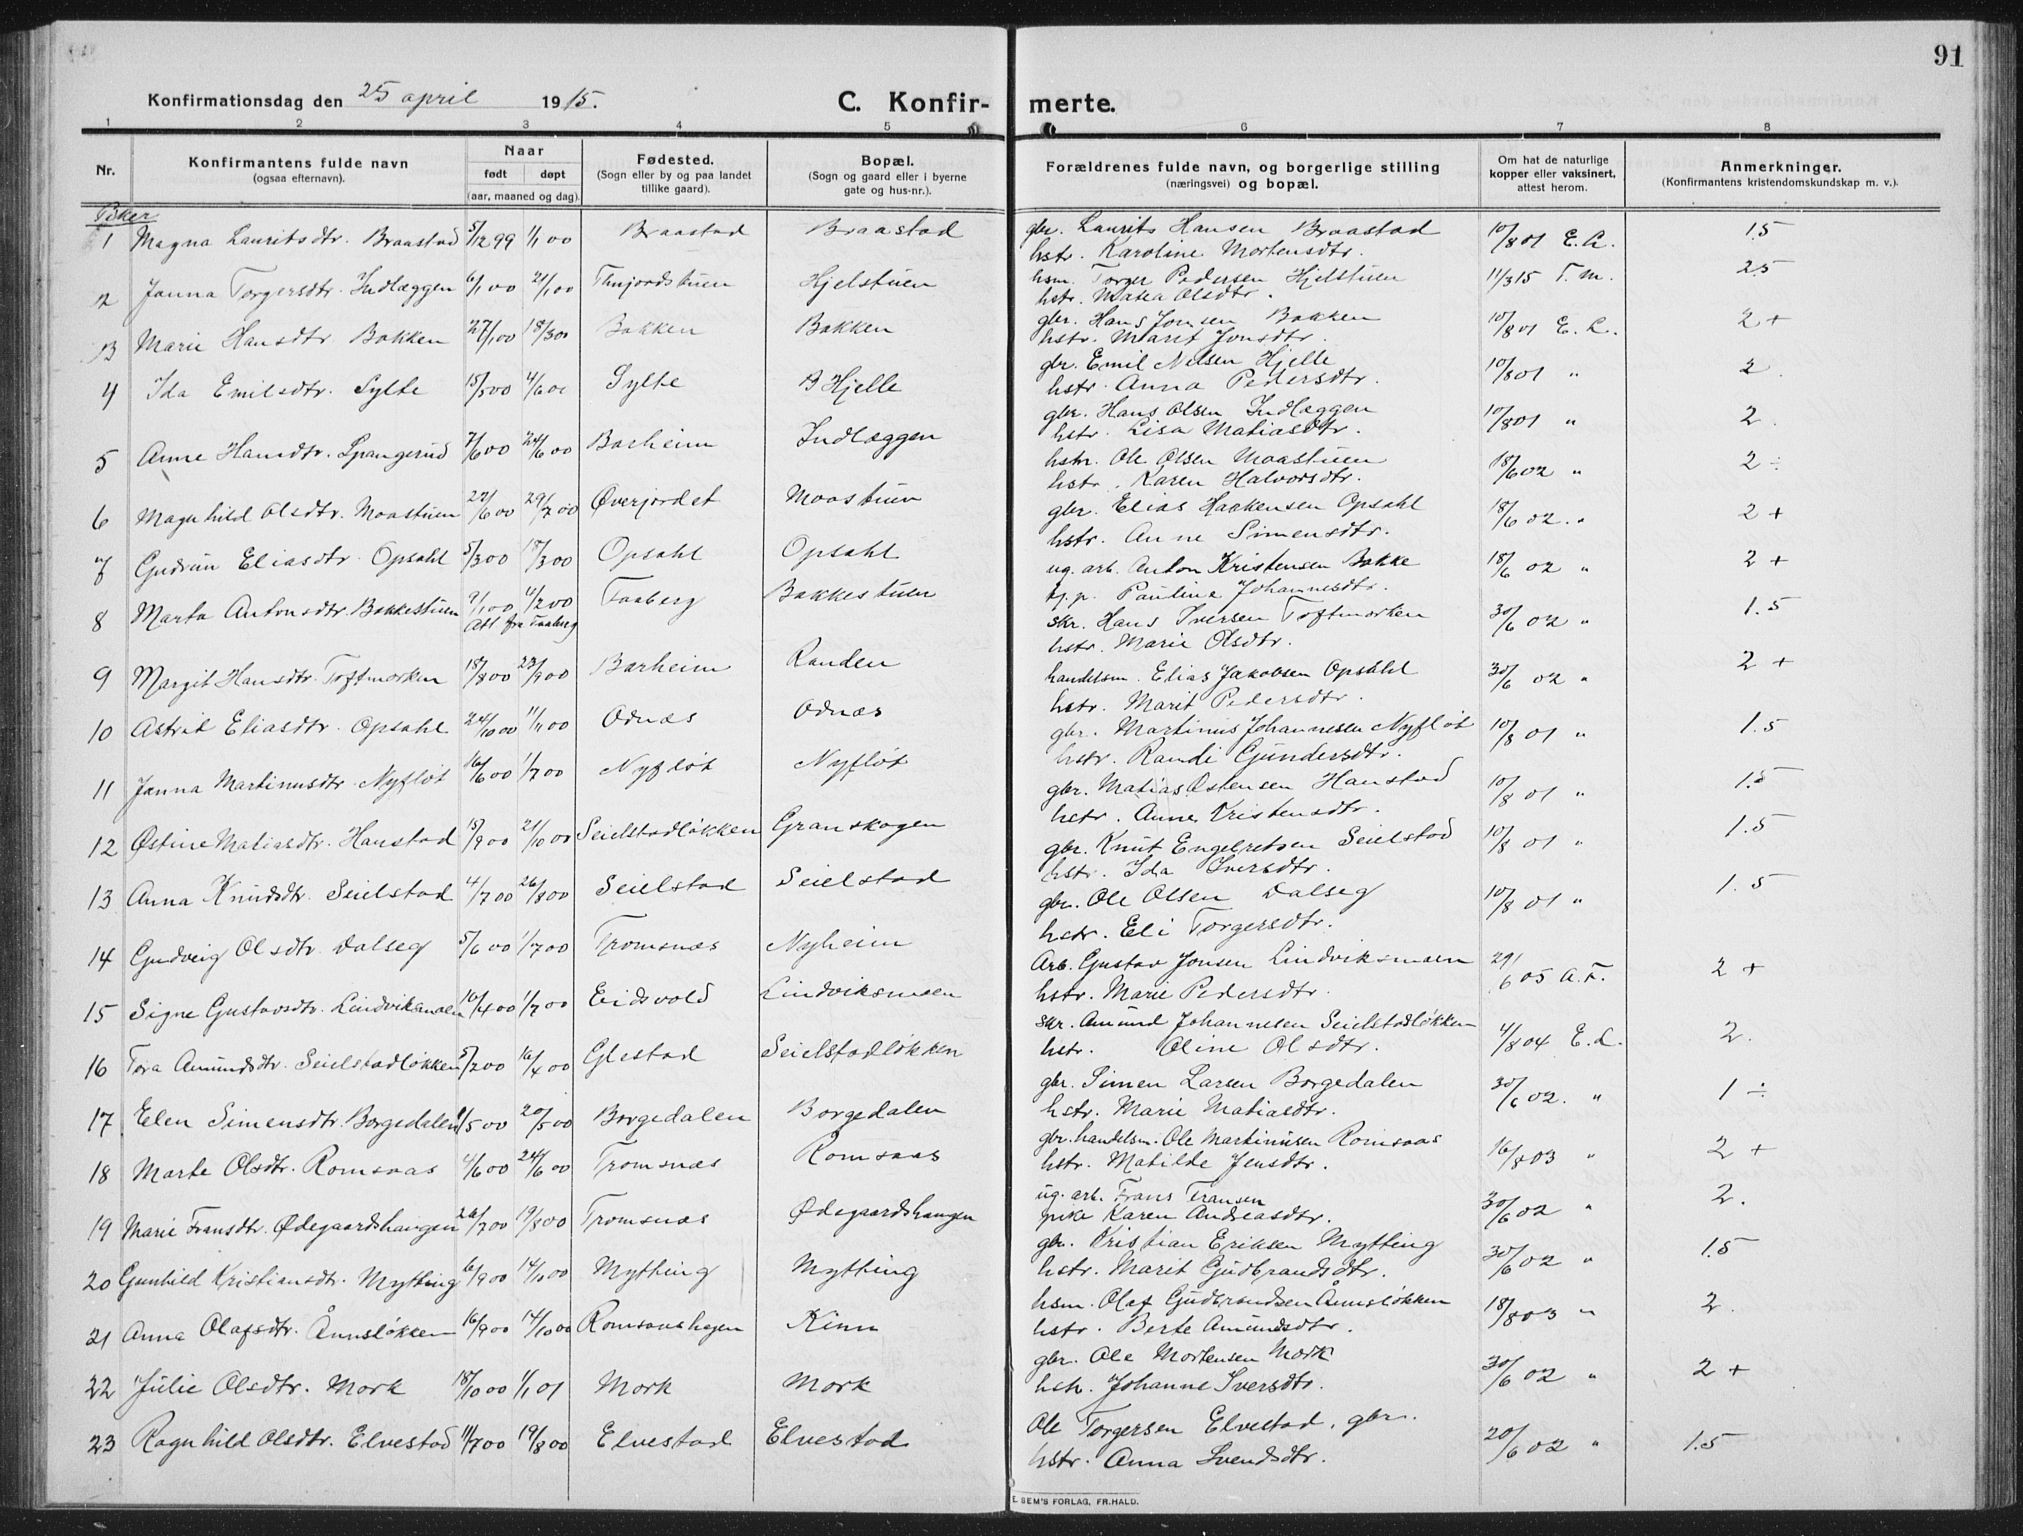 91
Konfirmationsdag den 25 april 1915.
C. Konfir-merte.
1 2 3 4 5 6 7 8
Nr. Konfirmantens fulde navn (ogsaa efternavn). Naar født døpt (aar, maaned og dag). Fødested. (Sogn eller by og paa landet tillike gaard). Bopæl. (Sogn og gaard eller i byerne gate og hus-nr.). Forældrenes fulde navn, og borgerlige stilling (næringsvei) og bopæl. Om hat de naturlige kopper eller vaksinert, attest herom. Anmerkninger. (Konfirmantens kristendomskundskap m. v.).
Piker
1 Magna Lauritsdtr. Braastad 5/12 99 1/1 00 Braastad Braastad gbr. Laurits Hansen Braastad 10/8 01 1.5
hstr. Karoline Mortensdtr.
2 Janna Torgersdtr. Indlæggen 6/1 00 21/1 00 Hjelstuen hsm. Torger Pedersen Hjelstuen 11/3 15 T. M. 25
hstr. Olsdtr.
3 Marie Hansdtr. Bakken 27/1 00 18/3 00 Bakken Bakken gbr. Hans Jonsen Bakken 10/8 01 E. L. 2 +
hstr. Marit Jonsdtr.
4 Ida Emilsdtr. Sylte 15/5 00 4/6 00 Sylte Hjelle gbr. Emil Nilsen Hjelle 10/8 01 " 2.
hstr. Anna Pedersdtr.
5 Anne Hansdtr. Spangerud 7/6 00 24/6 00 Barheim Indlæggen gbr. Hans Olsen Indlæggen 10/8 01 " 2.
hstr. Lisa Matiasdtr.
6 Magnhild Olsdtr. Moastuen 22/6 00 29/7 00 Øverjordet Moastuen hsm. Ole Olsen Moastuen 18/6 02 " 2 ÷
hstr. Karen Halvorsdtr.
7 Gudrun Eliasdtr. Opsahl 5/3 00 18/3 00 Opsahl Opsahl gbr. Elias Haakensen Opsahl 18/6 02 " 2 +
hstr. Anne Simensdtr.
8 Marta Antonsdtr. Bakkestuen 9/1 00 4/2 00 Faaberg Bakkestuen ug. arb. Anton Kristensen Bakke 18/6 02 " 2 +
Att fra Faaberg
Pauline Johannesdtr.
9 Margit Hansdtr. Toftmorken 18/8 00 23/9 00 Barheim Randen skr. Hans Iversen Toftmorken 30/6 02 " 1.5
hstr. Marie Olsdtr.
10 Astrid Eliasdtr. Opsahl 24/10 00 11/11 00 Odnæs Odnæs handelsm. Elias Jakobsen Opsahl 30/6 02 " 2 +
hstr. Marit Pedersdtr.
11 Janna Martinusdtr. Nyfløt 16/6 00 1/7 00 Nyfløt Nyfløt gbr. Martinus Johannesen Nyfløt 10/8 01 " 1.5
hstr. Randi Gundersdtr.
12 Østine Matiasdtr. Hanstad 15/9 00 21/10 00 Seielstadløkken Granskogen gbr. Matias Østensen Hanstad 10/8 01 " 1.5
hstr. Anne Kristensdtr.
13 Anna Knudsdtr. Seielstad 4/7 00 26/8 00 Seielstad Seielstad gbr. Knut Engebretsen Seielstad 10/8 01 " 1.5
hstr. Ida Iversdtr.
14 Gudveig Olsdtr. Dalseg 5/6 00 1/7 00 Tromsnæs Nyheim gbr. Ole Olsen Dalseg 10/8 01 " 1.5
hstr. Eli Torgersdtr.
15 Signe Gustavsdtr. Lindviksmoen 16/4 00 1/7 00 Eidsvold Lindviksmoen Arb. Gustav Jonsen Lindviksmoen 29/6 05 A. F. 2 +
hstr. Marie Pedersdtr.
16 Tora Amundsdtr. Seielstadløkken 5/2 00 16/4 00 Glestad Seielstadløkken skr. Amund Johannesen Seielstadløkken 4/8 04 E. L. 2.
hstr. Oline Olsdtr.
17 Elen Simensdtr. Borgedalen /5 00 20/5 00 Borgedalen Borgedalen gbr. Simen Larsen Borgedalen 30/6 02. " 1 ÷
hstr. Marie Matiasdtr.
18 Marte Olsdtr. Romsaas 4/6 00 24/6 00 Tromsnæs Romsaas gbr. handelsm. Ole Martinusen Romsaas 16/8 03 " 2 +
hstr. Matilde Jensdtr.
19 Marie Fransdtr. Ødegaardshaugen 26/7 00 19/8 00 Tromsnæs Ødegaardshaugen ug. arb. Frans Fransen 30/6 02 " 2.
pike Karen Andreasdtr.
20 Gunhild Kristiansdtr. Mytting 6/9 00 14/10 00 Mytting Mytting gbr. Kristian Eriksen Mytting 30/6 02 " 1.5
hstr. Marit Gudbrandsdtr.
21 Anna Olafsdtr. Ånnsløkken 16/9 00 14/10 00 Romsaashagen Kinn hsm. Olaf Gudbrandsen Ånnsløkken 18/8 03 " 2.
hstr. Berte Amundsdtr.
22 Julie Olsdtr. Mork 18/10 00 1/1 01 Mork Mork gbr. Ole Mortensen Mork 30/6 02 " 2 +
hstr. Johanne Iversdtr.
23 Ragnhild Olsdtr. Elvestad 11/7 00 19/8 00 Elvestad Elvestad Ole Torgersen Elvestad, gbr. 20/6 02 " 1.5
hstr. Anna Svendsdtr.
E. SEM'S FORLAG, FR.HALD.